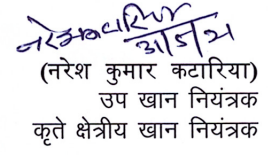 (नरेश कुमार कटारिया)
उप खान नियंत्रक
कृते क्षेत्रीय खान नियंत्रक